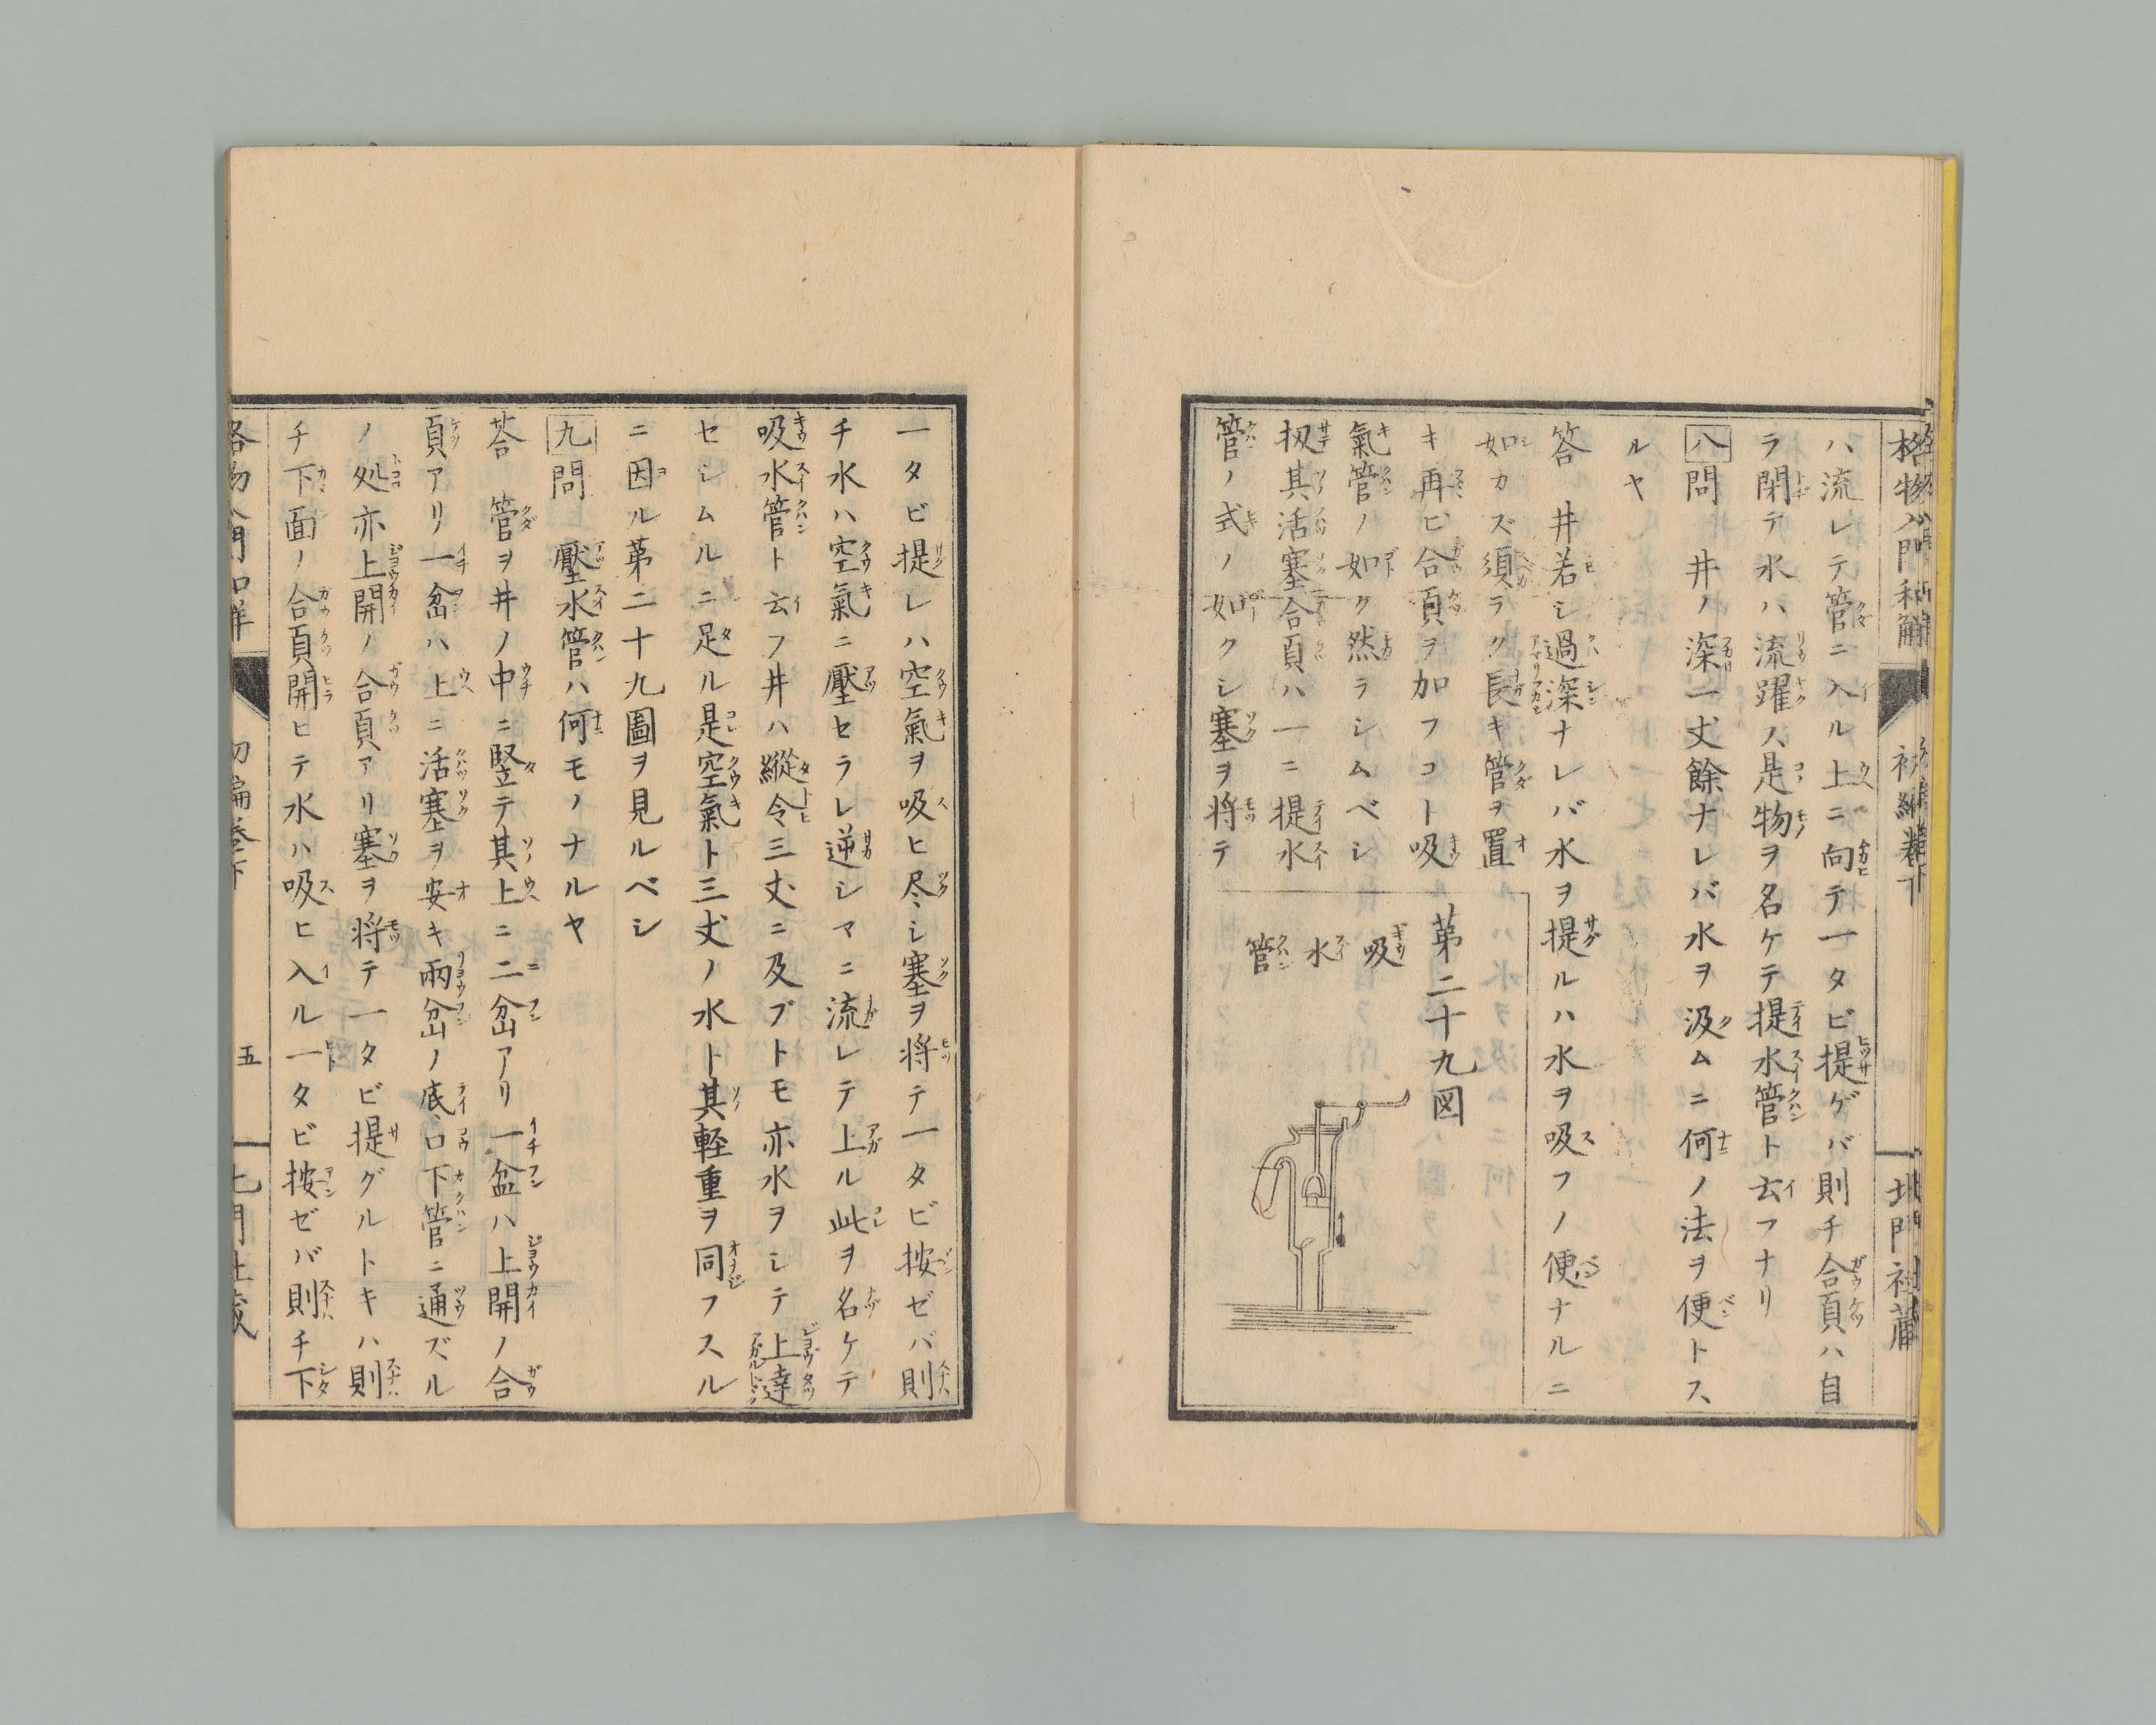 格物入門和解 初編巻下 北門社蔵
ハ流レテ管ニ入ル上ニ向テ一タビ提ゲバ則チ合頁ハ自
ラ閉テ水ハ流躍ス是物ヲ名ケテ提水管ト云フナリ
八問 井ノ深一丈餘ナレバ水ヲ汲ムニ何ノ法ヲ便トス
ルヤ
答 井若シ過深ナレバ水ヲ提ルハ水ヲ吸フノ便ナルニ
如カズ須ラク長キ管ヲ置
キ再ビ合頁ヲ加フコト吸
氣管ノ如ク然ラシムベシ
扨其活塞合頁ハ一ニ提水
管ノ式ノ如クシ塞ヲ将テ
第二十九図
吸水管
一タビ提レハ空氣ヲ吸ヒ尽シ塞ヲ将テ一タビ按ゼバ則
チ水ハ空氣ニ壓セラレ逆シマニ流レテ上ル此ヲ名ケテ
吸水管ト云フ井ハ縱令三丈ニ及ブトモ亦水ヲシテ上達
セシムルニ足ル是空氣ト三丈ノ水ト其軽重ヲ同フスル
ニ因ル第二十九圖ヲ見ルベシ
九問 壓水管ハ何モノナルヤ
荅 管ヲ井ノ中ニ竪テ其上ニ二盆アリ一盆ハ上開ノ合
頁アリ一盆ハ上ニ活塞ヲ安キ兩盆ノ底口下管ニ通ズル
ノ処亦上開ノ合頁アリ塞ヲ将テ一タビ提グルトキハ則
チ下面ノ合頁開ヒテ水ハ吸ヒ入ル一タビ按ゼバ則チ下
格物入門和解 初編巻下 五 北門社蔵